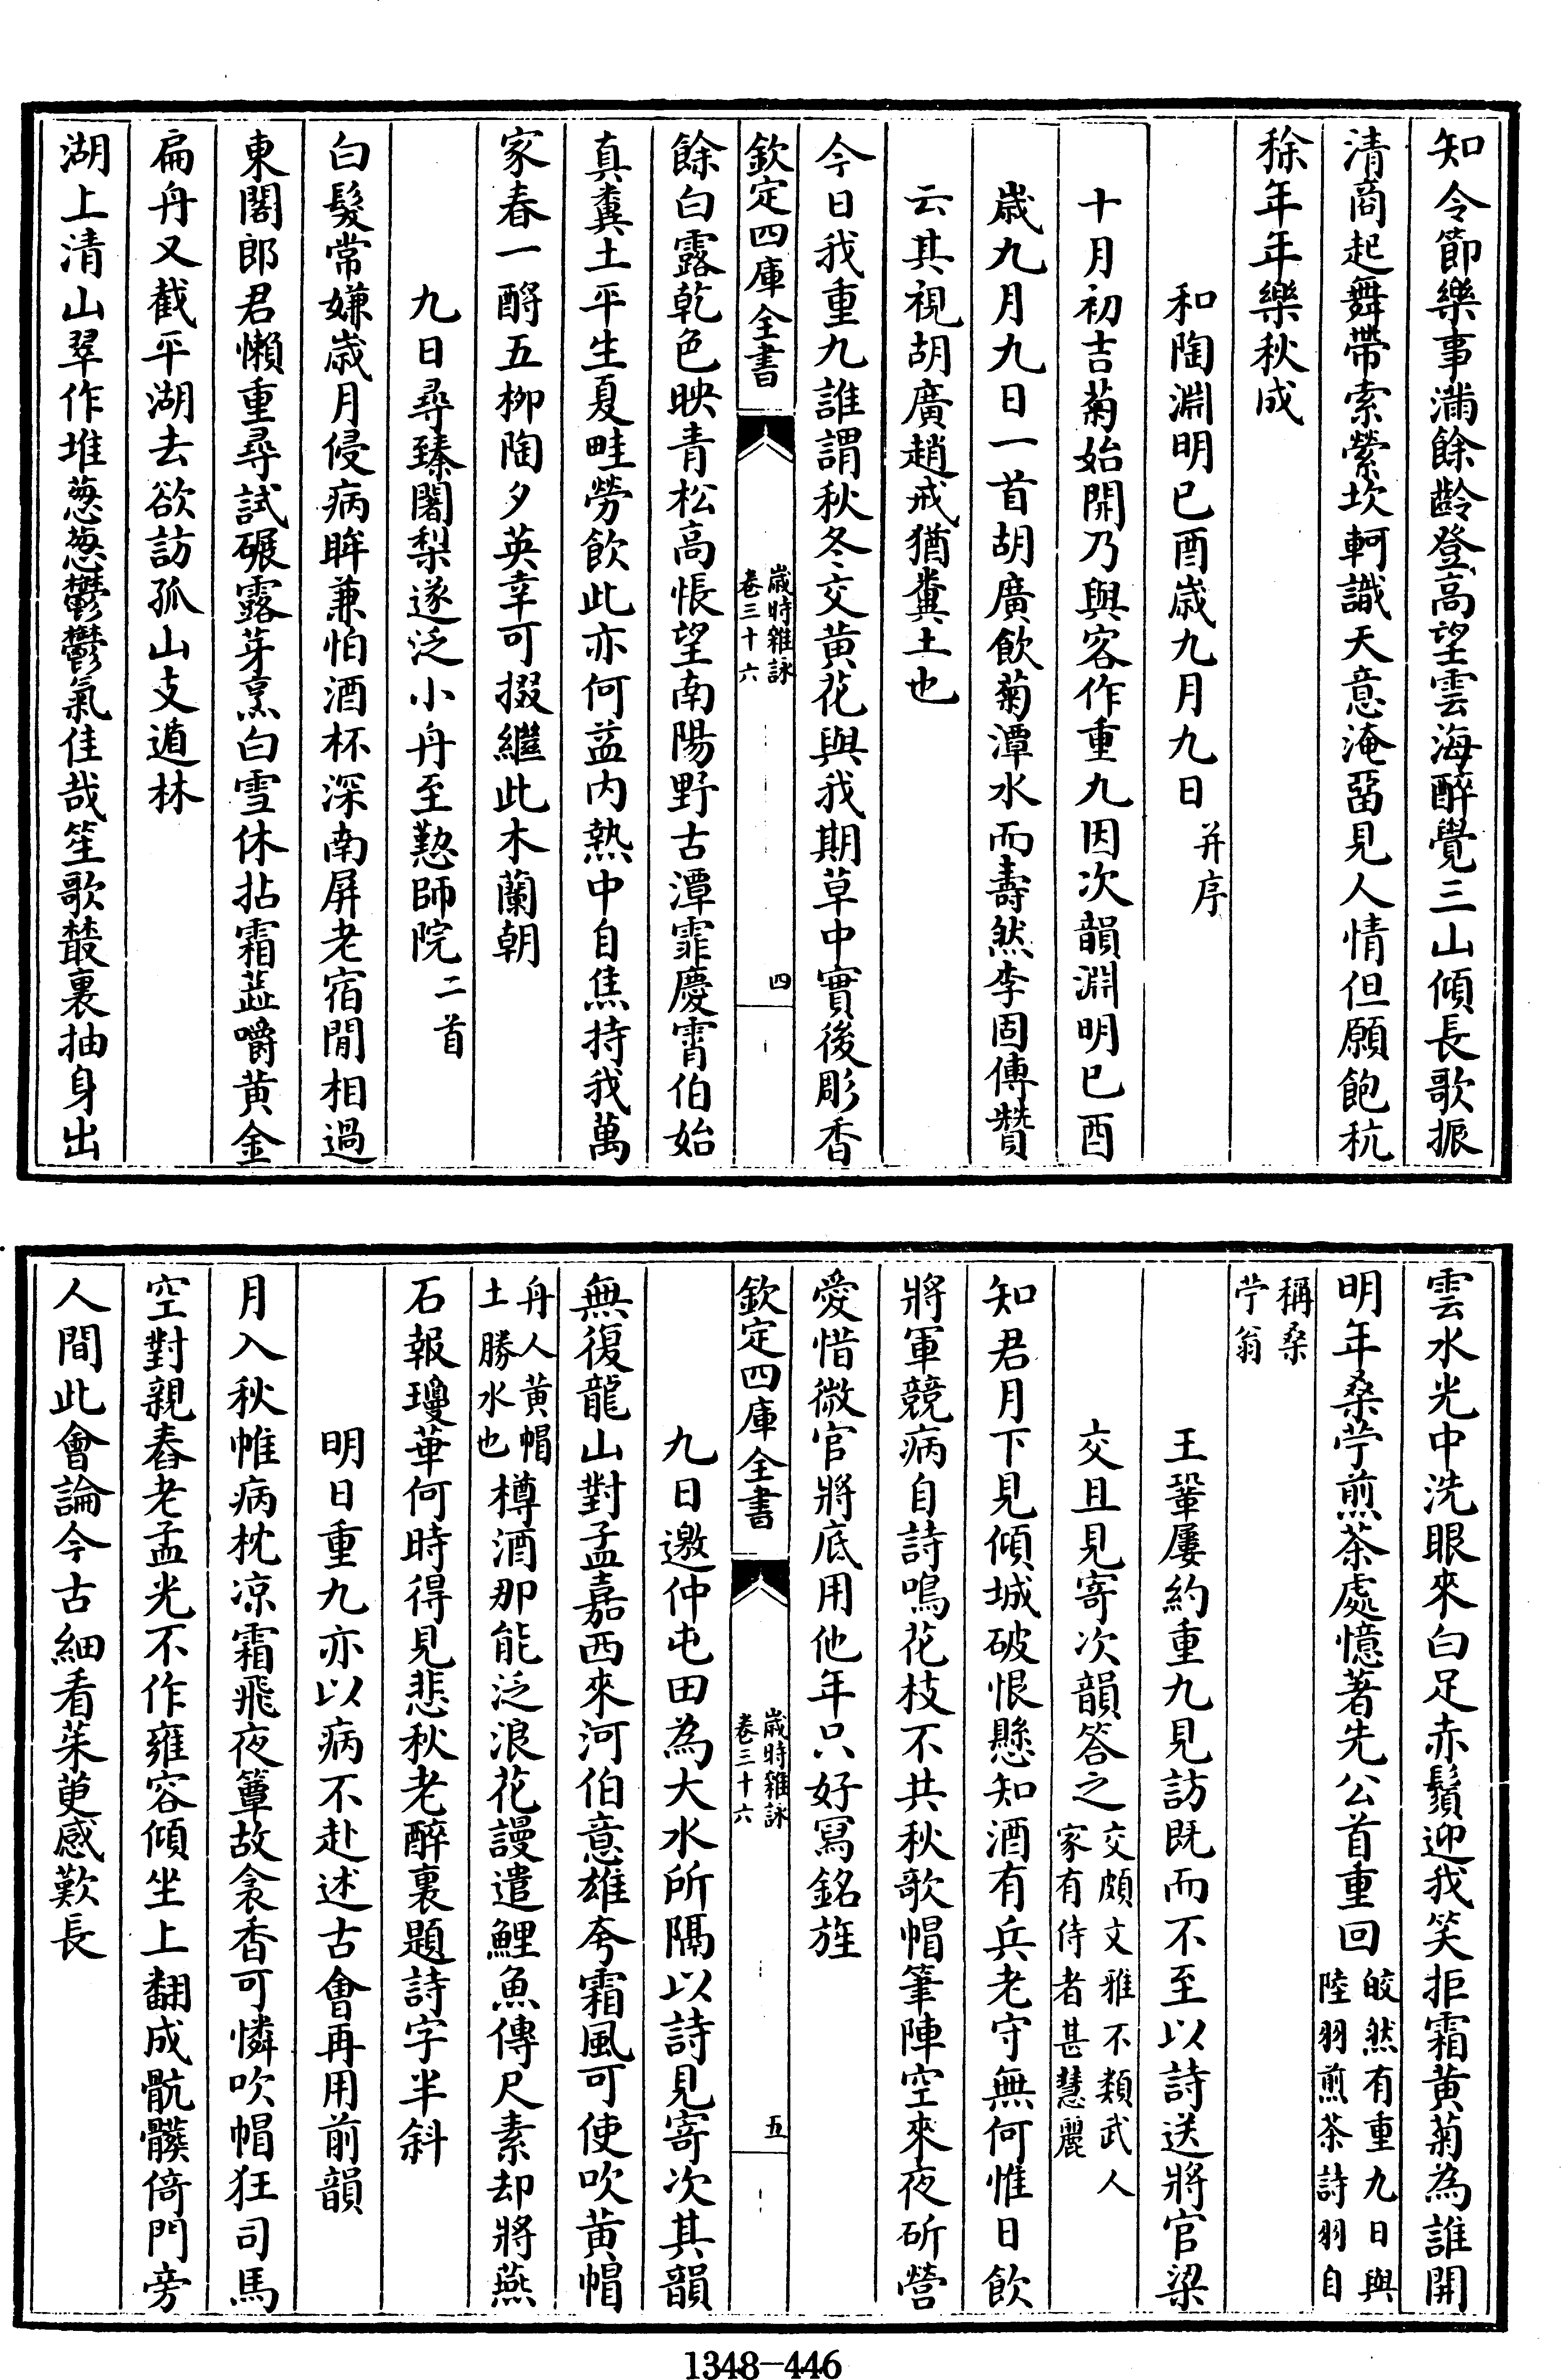 知令節樂事滿餘齡登高望雲海醉覺三山傾長歌振
清商起舞帶索縈坎軻識天意淹留見人情但願飽秔
稌年年樂秋成
和陶淵明已酉歲九月九日并序
十月初吉菊始開乃與客作重九因次韻淵明已酉
歲九月九日一首胡廣飲菊潭水而壽然李固傳贊
云其視胡廣趙戒猶糞土也
今日我重九誰謂秋冬交黄花與我期草中實後彫香
欽定四庫全書
歲時雜詠
卷三十六
四
餘白露乾色映青松高悵望南陽野古潭霏慶霄伯始
真糞土平生夏畦勞飲此亦何益内熱中自焦持我萬
家春一酹五栁陶夕英幸可掇繼此木蘭朝
九日尋臻闍梨遂泛小舟至懃師院二首
白髮常嫌歲月侵病眸兼怕酒杯深南屏老宿閒相過
東閣郎君懶重尋試碾露芽烹白雪休拈霜蕋嚼黄金
扁舟又截平湖去欲訪孤山支遁林
湖上清山翠作堆葱葱鬱鬱氣佳哉笙歌叢裏抽身出
雲水光中洗眼來白足赤鬚迎我笑拒霜黄菊為誰開
明年桑苧煎茶處憶著先公首重回皎然有重九日與
陸羽煎茶詩羽自
稱桑
苧翁
王鞏屢約重九見訪既而不至以詩送將官梁
交且見寄次韻答之交頗文雅不類武人
家有侍者甚慧麗
知君月下見傾城破恨懸知酒有兵老守無何惟日飲
將軍競病自詩鳴花枝不共秋歌帽筆陣空來夜斫營
愛惜微官將底用他年只好冩銘旌
欽定四庫全書
歲時雜詠
卷三十六
五
九日邀仲屯田為大水所隔以詩見寄次其韻
無復龍山對孟嘉西來河伯意雄夸霜風可使吹黄帽
舟人黄帽
土勝水也樽酒那能泛浪花謾遣鯉魚傳尺素却將燕
石報瓊華何時得見悲秋老醉裏題詩字半斜
明日重九亦以病不赴述古會再用前韻
月入秋帷病枕凉霜飛夜簟故衾香可憐吹帽狂司馬
空對親舂老孟光不作雍容傾坐上翻成骯髒倚門旁
人間此會論今古細看茱萸感歎長
1348—446